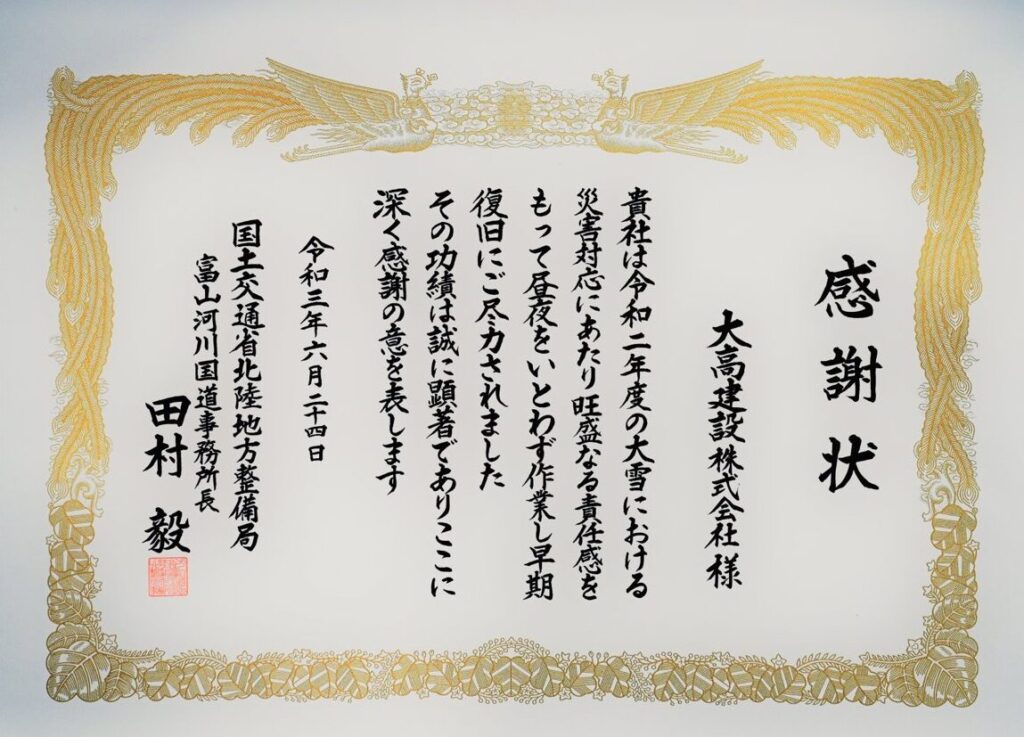 感謝状
大高建設株式会社様
貴社は令和二年度の大雪における
災害対応にあたり旺盛なる責任感を
もって昼夜をいとわず作業し早期
復旧にご尽力されました
その功績は誠に顕著でありここに
深く感謝の意を表します
令和三年六月二十四日
国土交通省北陸地方整備局
富山河川国道事務所長
田村毅